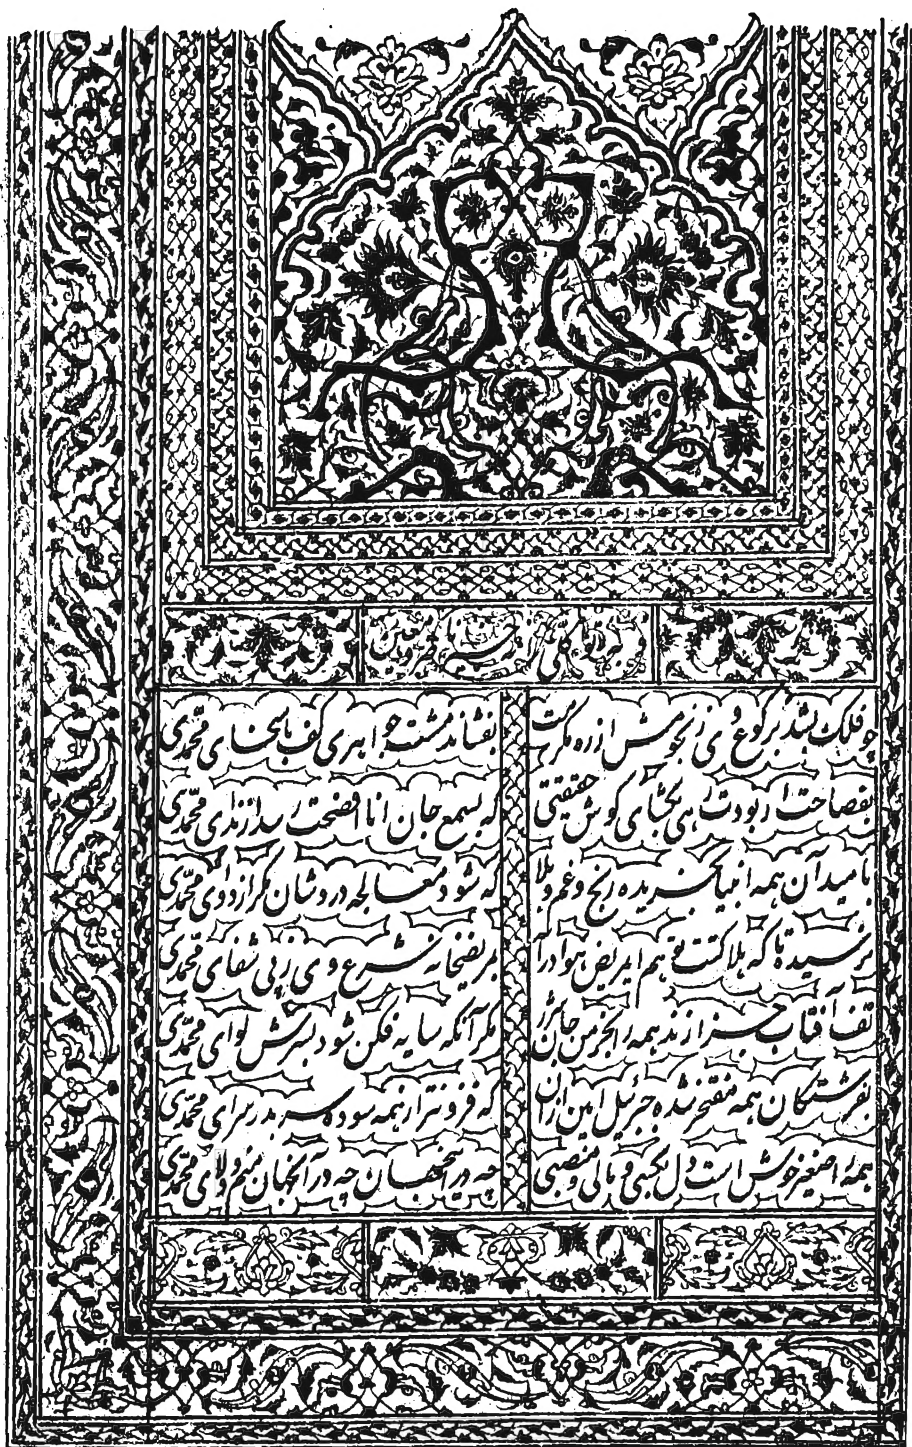 چو فلک بشد بر کوع وی ز نجومش از ره مکرمت بفشاند مشت جواهری کف باسخای محمّدی
بفصاحت ار بودت اهی بگشای گوش حقیقتی که بسمع جان انا افصحت رسد از ندای محمّدی
بامید آن همه انبیا بگزیده رنج و غم و بلا که شود معالجه دردشان مگر از دوای محمّدی
نرسیده تا که هلاکتت تو هم ای مریض هوا درا بمریضخانه شرع وی ز پی شفای محمّدی
تف آفتاب جزا زند همه را بخرمن جان شرر مگر آنکه سایه فکن شود بسرش لوای محمّدی
بفرشتگان همه مفتخر شده جبرئیل امین از آن که فزونتر از همه سوده سر بدر سرای محمّدی
همه را صغیر خوش است دل بکسی و مالی و منصبی چه در این جهان چه در آنجهان منم و ولای محمّدی